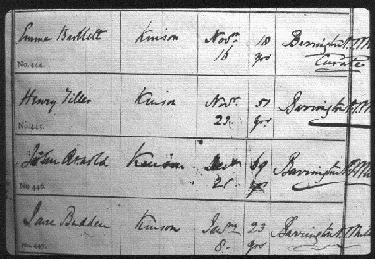 Emma Bartlett Kinson Novr. 18 Barrington S. M
16 yrs Curate
No. 444.
Henry Tiller Kinson Novr. 51 Barrington S. M
23 yrs
No. 445.
Arnold Kinson 69 Barrington S. M
25 yrs
No. 446.
Jane Budden Kinson Jany 23 Barrington S. Mil
8 yrs
No. 447.